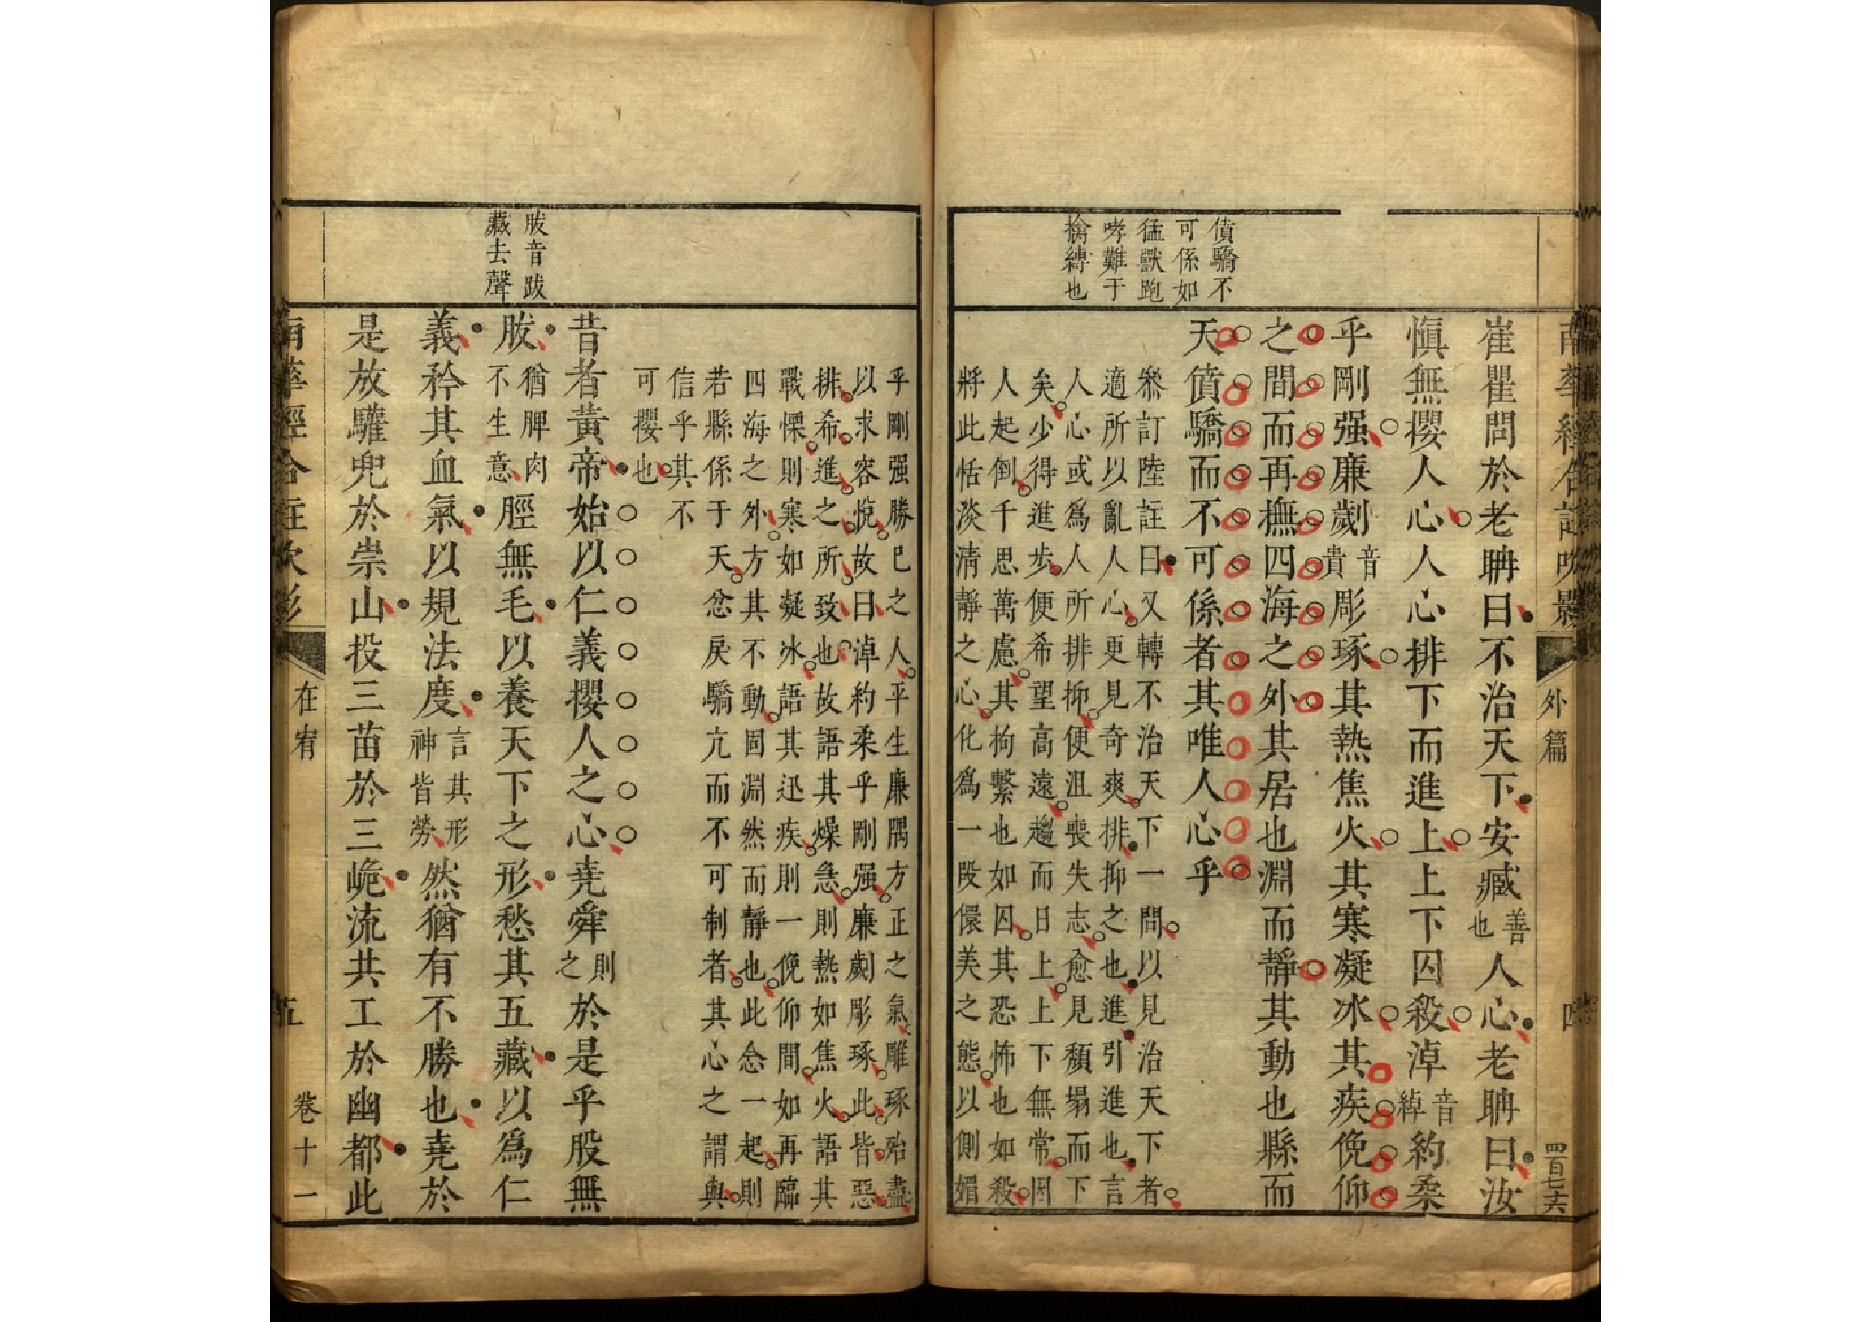 外篇
四百七六
債驕不
可係如
猛獸跑
哮難于
擒縛也
崔瞿問於老聃曰不治天下安臧善也人心老聃曰汝
愼無攖人心人心排下而進上上下囚殺淖音綽約柔
乎剛强廉劌音貴彫琢其熱焦火其寒凝冰其疾俛仰
之間而再撫四海之外其居也淵而靜其動也縣而
天僨驕而不可係者其唯人心乎
叅訂陸註曰又轉不治天下一問以見治天下者
適所以亂人心更見奇爽排抑之也進引進也言
人心或爲人所排抑便沮喪失志愈見頹塌而下
矣少得進步便希望高遠趨而日上上下無常囚
人起倒千思萬慮其拘繫也如囚其恐怖也如殺
將此恬淡淸靜之心化爲一段儇美之態以側媚
乎剛强勝已之人平生廉隅方正之氣雕琢殆盡
以求容悅故曰淖約柔乎剛强廉劌彫琢此皆惡
排希進之所致也故語其燥急則熱如焦火語其
戰慄則寒如凝冰語其迅疾則一俛仰間如再臨
四海之外方其不動固淵然而靜也此念一起則
若縣係于天忿戾驕亢而不可制者其心之謂與
信乎其不
可攖也
胈音跋
藏去聲
昔者黃帝始以仁義攖人之心堯舜則之於是乎股無
胈猶脾肉不生意脛無毛以養天下之形愁其五藏以爲仁
義矜其血氣以規法度言其形神皆勞然猶有不勝也堯於
是放驩兜於崇山投三苗於三峗流共工於幽都此
在宥
五
卷十一